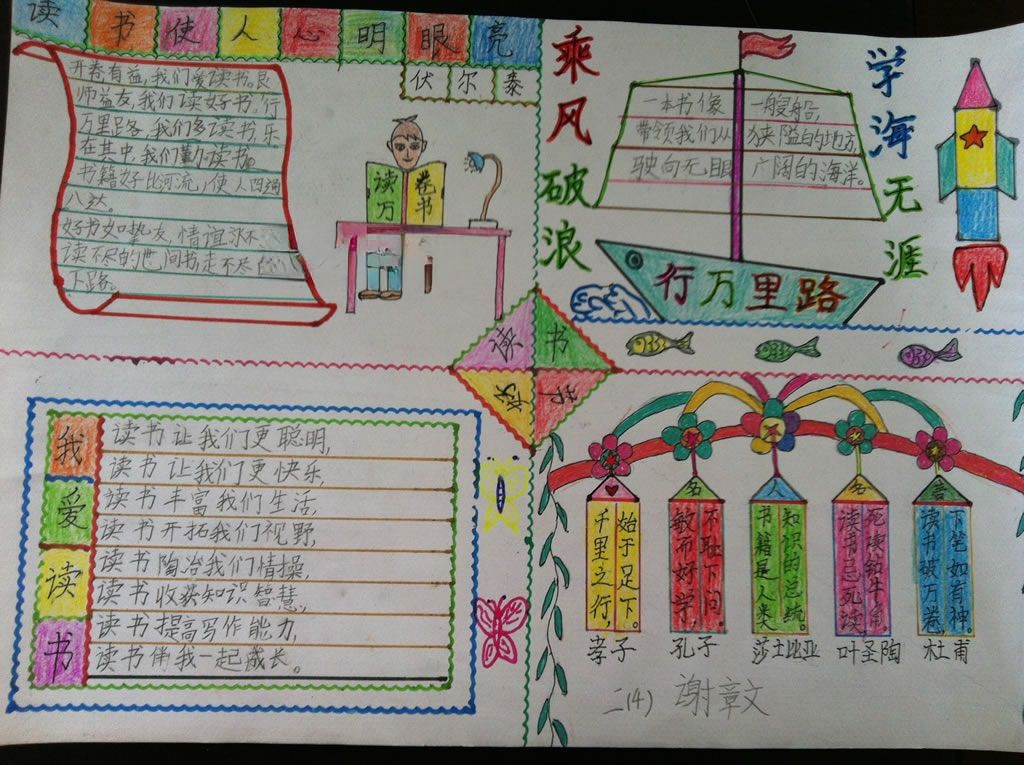 读书使人心明眼亮
伏尔泰
开卷有益,我们爱读书。良
师益友,我们读好书,行
万里路,我们多读书,乐
在其中,我们勤读书。
书籍好比河流,使人四通
八达。
好书如挚友,情谊
读不尽的世间书走不尽
下路。
读万卷书
乘风破浪
学海无涯
一本书像一般船,
带领我们从狭隘的地方,
驶向无眼广阔的海洋。
行万里路
读书
我爱读书
读书让我们更聪明,
读书让我们更快乐,
读书丰富我们生活,
读书开拓我们视野,
读书陶冶我们情操,
读书收获知识智慧,
读书提高写作能力,
读书伴我一起成长。
名人名言
千里之行,
始于足下。
孝子
敏而好学,
不耻下问。
孔子
书籍是人类
知识的总统
莎士比亚
读书忌死读,
死读钻牛角。
叶圣陶
读书破万卷,
下笔如有神。
杜甫
二(4) 谢章文